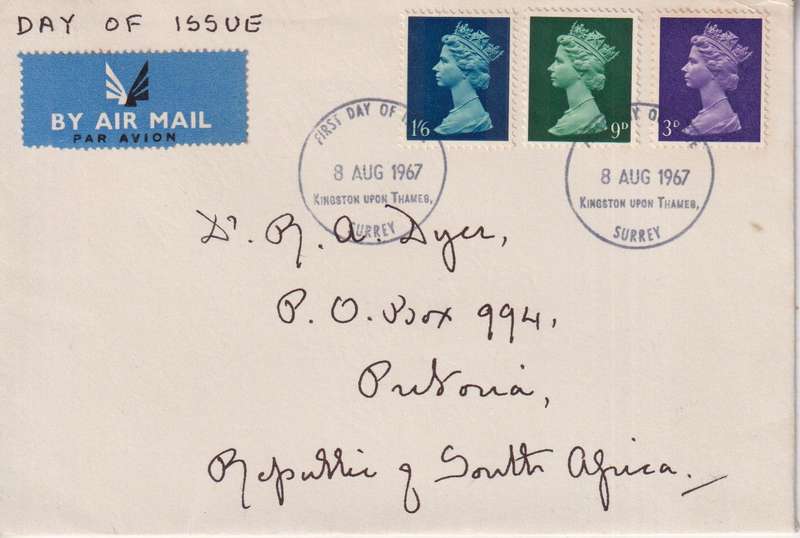 DAY OF ISSUE
BY AIR MAIL
PAR AVION
1/6
9D
3D
FIRST DAY OF
8 AUG 1967
KINGSTON UPON THAMES,
SURREY
DAY OF
8 AUG 1967
KINGSTON UPON THAMES,
SURREY
Dr. R. A. Dyer,
P. O. Box 994,
Pretoria,
Republic of South Africa.